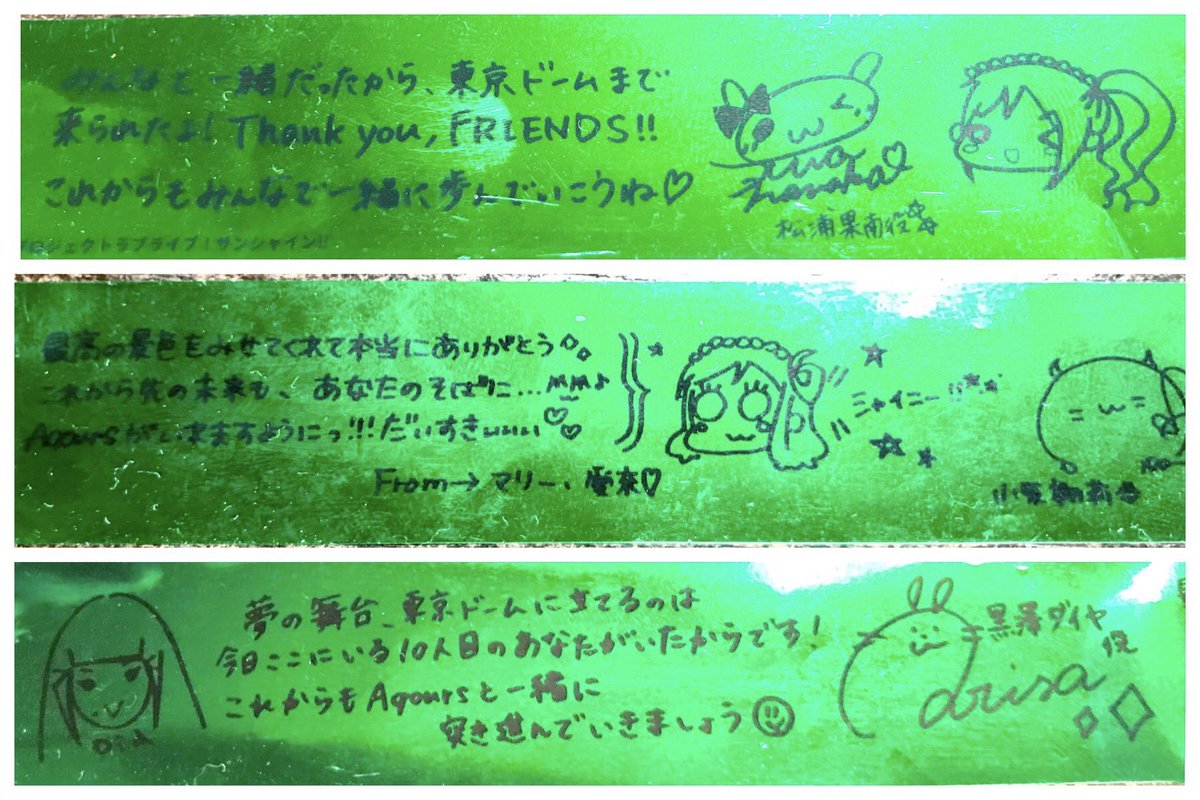 みんなと一緒だったから、東京ドームまで
来られたよ! Thank you, FRIENDS!!
これからもみんなで一緒に歩んでいこうね♡
プロジェクトラブライブ!サンシャイン!!
松浦果南役
最高の景色をみせてくれて本当にありがとう
これから先の未来も、あなたのそばに…
Aqoursがい来ますようにっ!!!だいすきぃぃぃぃ
From→マリー、愛来♡
シャイニー!!
夢の舞台、東京ドームに立てるのは
今日ここにいる10人目のあなたがいたからです!
これからもAqoursと一緒に
突き進んでいきましょう
DIA
黒澤ダイヤ
役
arisa